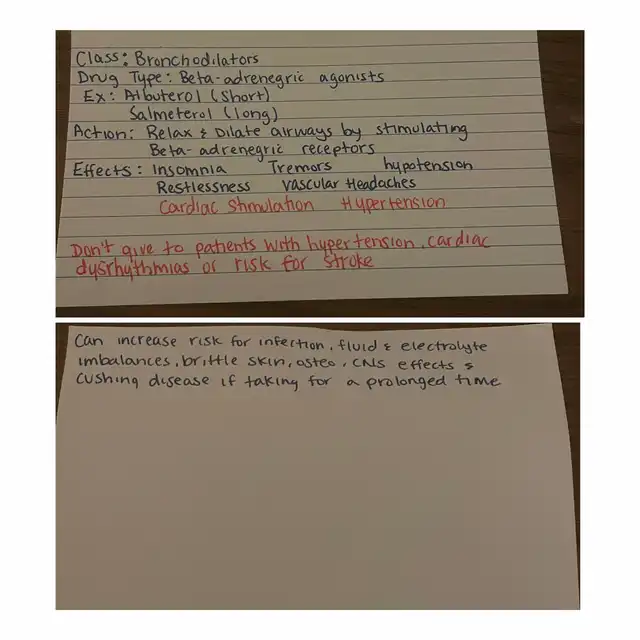 Class: Bronchodilators
Drug Type: Beta-adrenegric agonists
Ex: Albuterol (Short)
Salmeterol (long)
Action: Relax & Dilate airways by stimulating
Beta-adrenegric receptors
Effects: Insomnia Tremors hypotension
Restlessness vascular Headaches
Cardiac Stimulation Hypertension
Don't give to patients with hypertension, cardiac
dysrhythmias or risk for stroke
Can increase risk for infection, fluid & electrolyte
imbalances, brittle skin, osteo, CNS effects &
Cushing disease if taking for a prolonged time